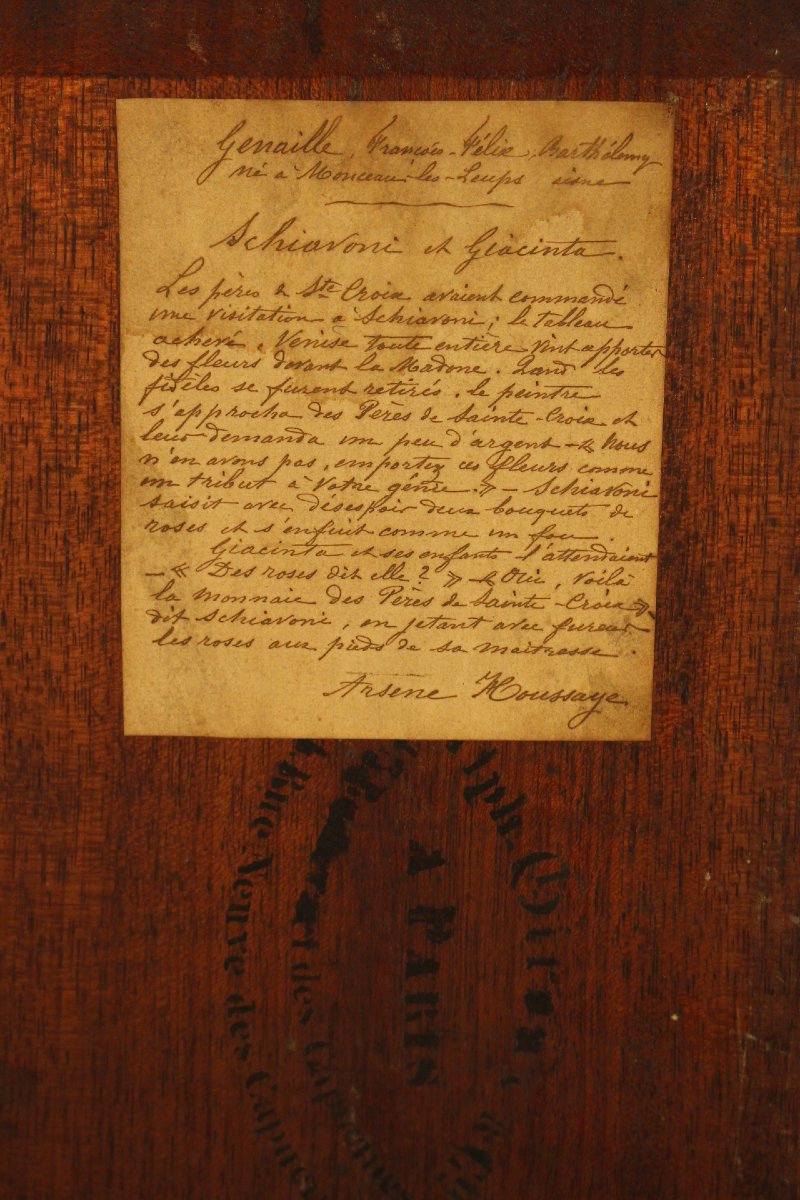 Genaille, François-Félix, Barthélemy
né à Monceau-les-Loups aisne
Schiavoni et Giacinta.
Les pères de Ste Croix avaient commandé
une visitation à Schiavoni; le tableau
achevé, Venise toute entière vint apporter
des fleurs devant la Madone. Quand les
fidèles se furent retirés, le peintre
s'approcha des Pères de Sainte-Croix et
leur demanda un peu d'argent – « Nous
n'en avons pas, emportez ces fleurs comme
un tribut à votre génie. » – Schiavoni
saisit avec désespoir deux bouquets de
roses et s'enfuit comme un fou.
Giacinta et ses enfants l'attendaient
– « Des roses dit elle? » – « Oui, voilà
la monnaie des Pères de Sainte-Croix »
dit Schiavoni, en jetant avec fureur
les roses aux pieds de sa maîtresse.
Arsene Houssaye
Rue Neuve des
des
A PARIS